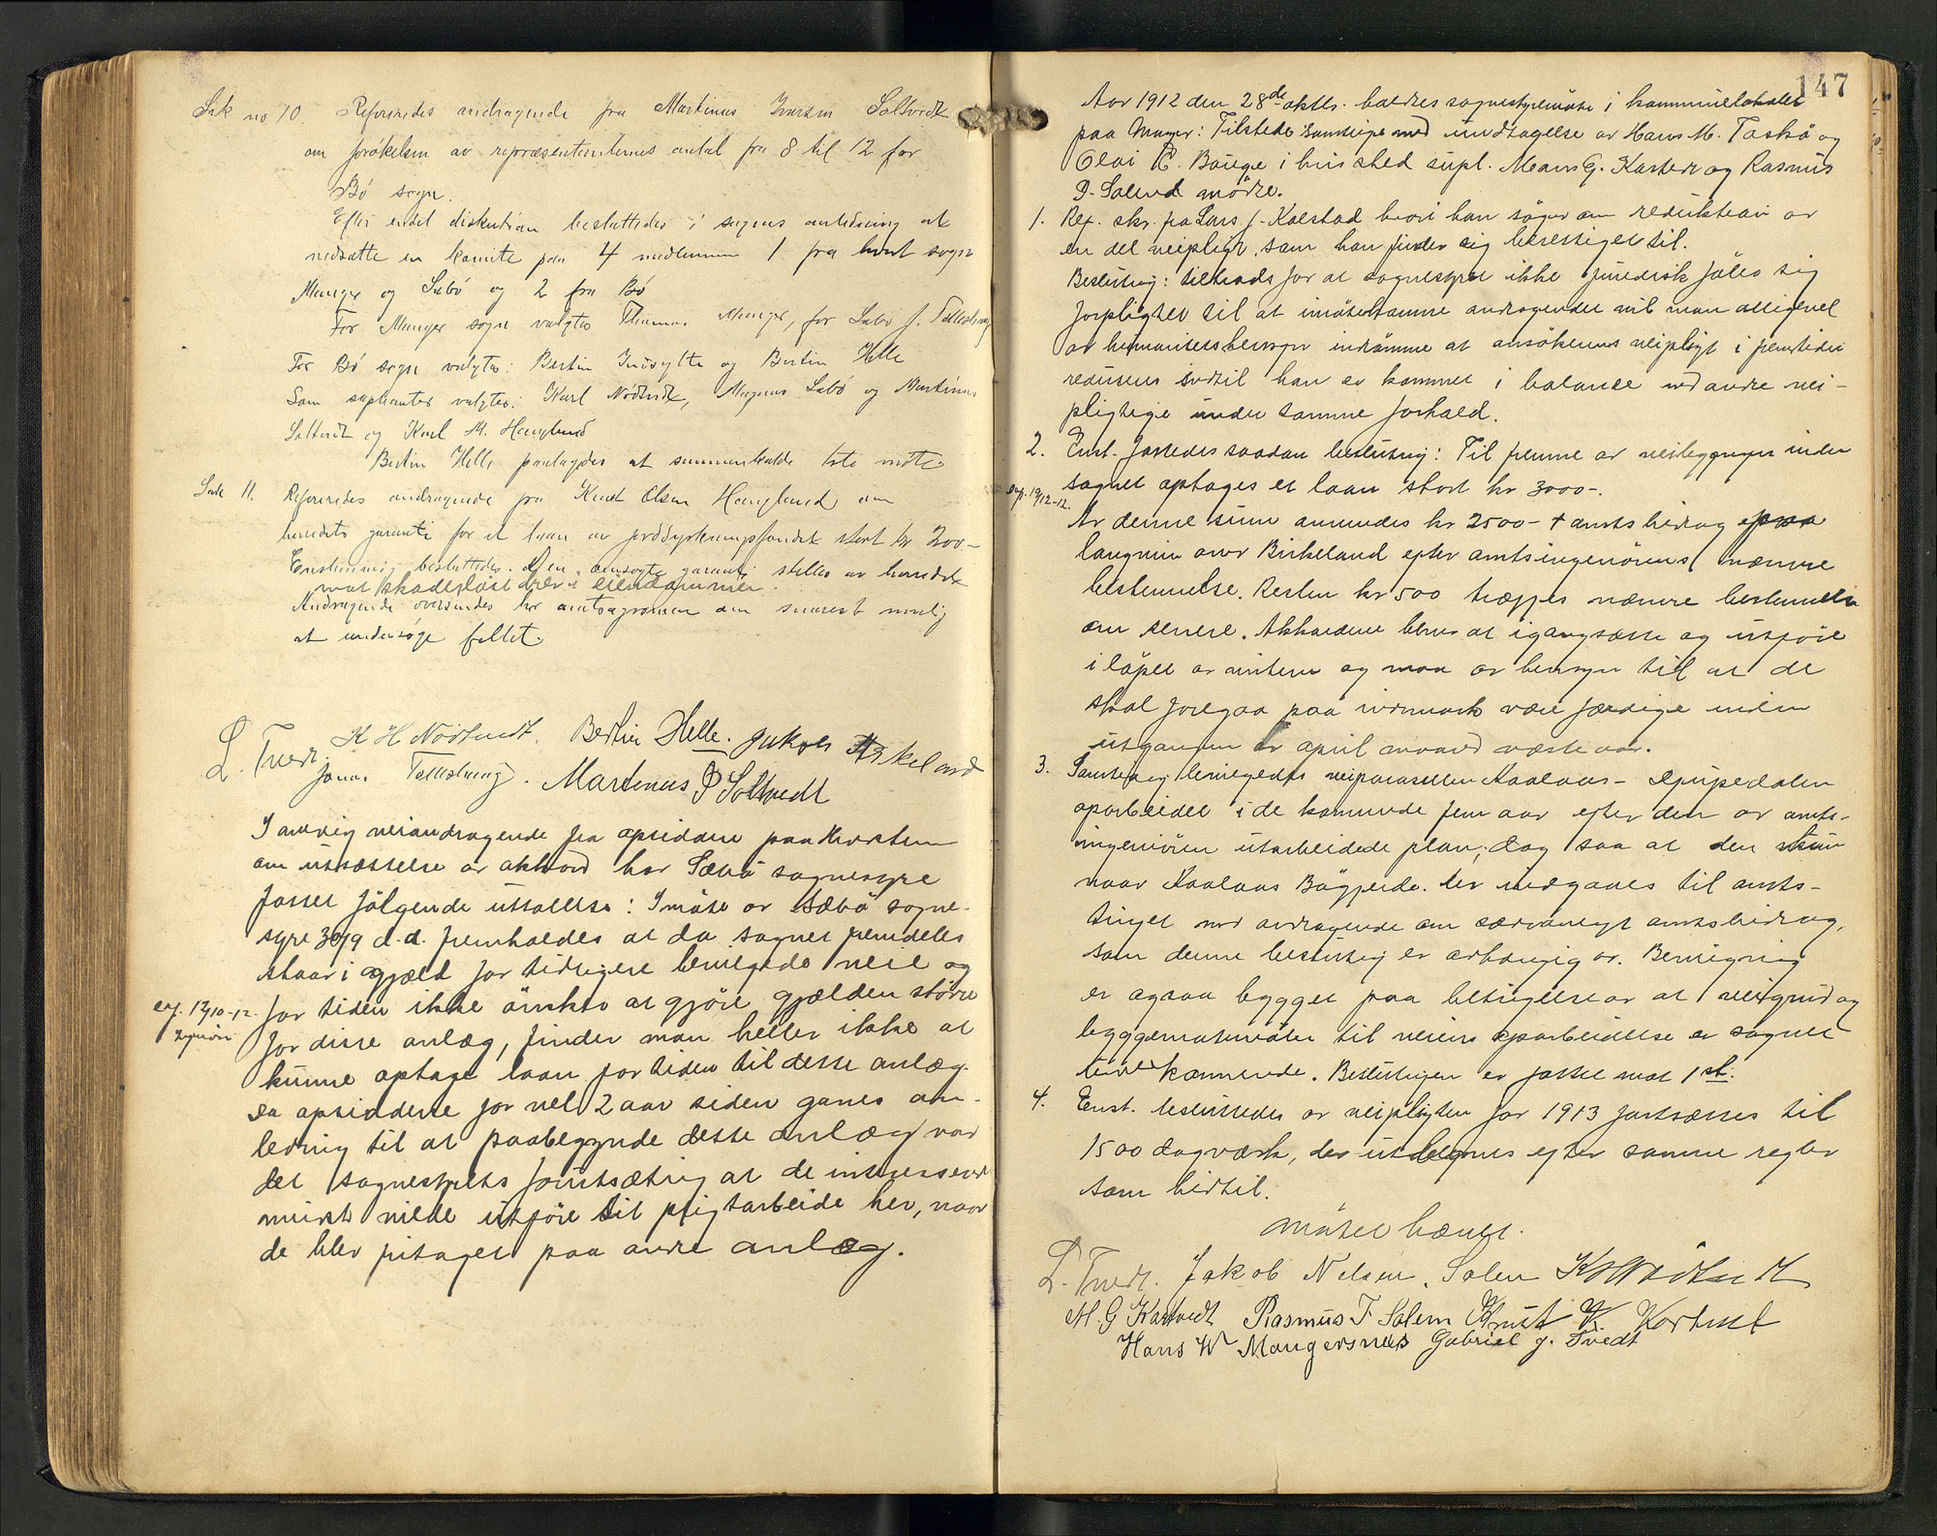 Sak no 10. Refereredes andragende fra Martinus Iversen Soltvedt
om forøkelsen av repræsentanternes antal fra 8 til 12 for
Bø sogn.
Efter endel diskution besluttedes i sagens anledning at
nedsætte en komite paa 4 medlemmer 1 fra hvert sogn
Manger og Sæbö og 2 fra Bö
For Manger sogn valgtes Thomas Manger, for Sæbö J.
For Bö sogn valgtes: Bertin Indsylte og Bertin Helle
Som suplianter valgtes: Karl Nödtvedt, Magnus Sæbö og Martinus
Soltvedt og Karl M. Hauglund
Bertin Helle paalagdes at sammenkalde 1ste møte
Sak 11. Refereredes andragende fra Knut Olsen Hauglund om
herredets garanti for et laan av jorddyrkningsfondet stort kr 300.-
Enstemmig besluttedes. Den ansøgte garanti stilles av herredet
mot skadesløst brev i eiendommen.
Andragende oversendes hr amtsagronom om snarest mulig
at undersøge feltet.
L. Tvedt. K H Nödtvedt. Bertin Helle. Jakob Askeland
Jonas . Martinus Soltvedt
I anledning veiandragende fra opsiddere paa
om utsættelse av akkord har Sæbö sognestyre
fattet fölgende uttalelse: I möte av Sæbö sogne-
styre 30/9 d.d. fremholdes at da sognet fremdeles
staar i gjæld for tidligere bevilgede veie og
exp. 12/10-12. for tiden ikke önsker at gjöre gjælden større
for disse anlæg, finder man heller ikke at
kunne optage laan for tiden til dette anlæg.
Da opsidderne for vel 2 aar siden ganes an-
ledning til at paabegynde dette anlæg var
det sognestyrets forutsætning at de interesserte
minst vilde utföre sit pligtarbeide her, naar
de blev fritaget paa andre anlæg.
147
Aar 1912 den 28de oktbr. holdtes sognestyremöte i kommunelokalet
paa Manger: Tilstede samtlige med undtagelse av Hans M. Toskö og
Olai E. Bauge i hvis sted supl. Mons G. Kartvedt og Rasmus
P. Solend mötte.
1. Ref. skr. fra Lars J. Kolstad hvori han söger om reduktion av
en del veipligt, som han finder sig berettiget til.
Beslutning: tiltrods for at sognestyret ikke juridisk föles sig
forpligtet til at imötekomme andragendet vil man alligevel
av humanitetshensyn indrömme at ansökerens veipligt i fremtiden
reduseres indtil han er kommet i balance med andre vei-
pligtige under samme forhold.
2. Enst. fattedes saadan beslutning: Til fremme av veibygninger inden
exp. 19/12-12. sognet optages et laan stort kr 3000-.
Av denne sum anvendes kr 2500- + amtsbidrag
over Birkeland efter amtsingeniörens nærmere
bestemmelse. Resten kr 500 træffes nærmere bestemmelse
om senere. Akkordene blir at igangsætte og utföre
i löpet av vinteren og maa av hensyn til at de
skal foregaa paa indmark være færdige inden
utgangen av april maaned næste aar.
3. Samtidig bevilgedes veiparsellen Kaalaas -
oparbeidet i de kommende fem aar efter den av amts-
ingeniören utarbeidede plan; dog saa at den
naar Kaalaas Der indgaaes til amts-
tinget med andragende om sædvanligt amtsbidrag,
som denne beslutning er avhængig av. Bevilgning
er ogsaa bygget paa betingelse av at veigrund og
byggematerialer til veiens oparbeidelse er sognet
uvedkommende. Beslutningen er fattet mot 1 st.
4. Enst. besluttedes at veipligten for 1913 fastsættes til
1500 dagværk, der utlignes efter samme regler
som hidtil.
Mötet hævet.
L. Tvedt. Jakob Nilsen. Solem K H Nödtvedt
M. G Kartvedt Rasmus P. Solem Knut K Kartvedt
Hans W Mangersnes Gabriel J. Tvedt